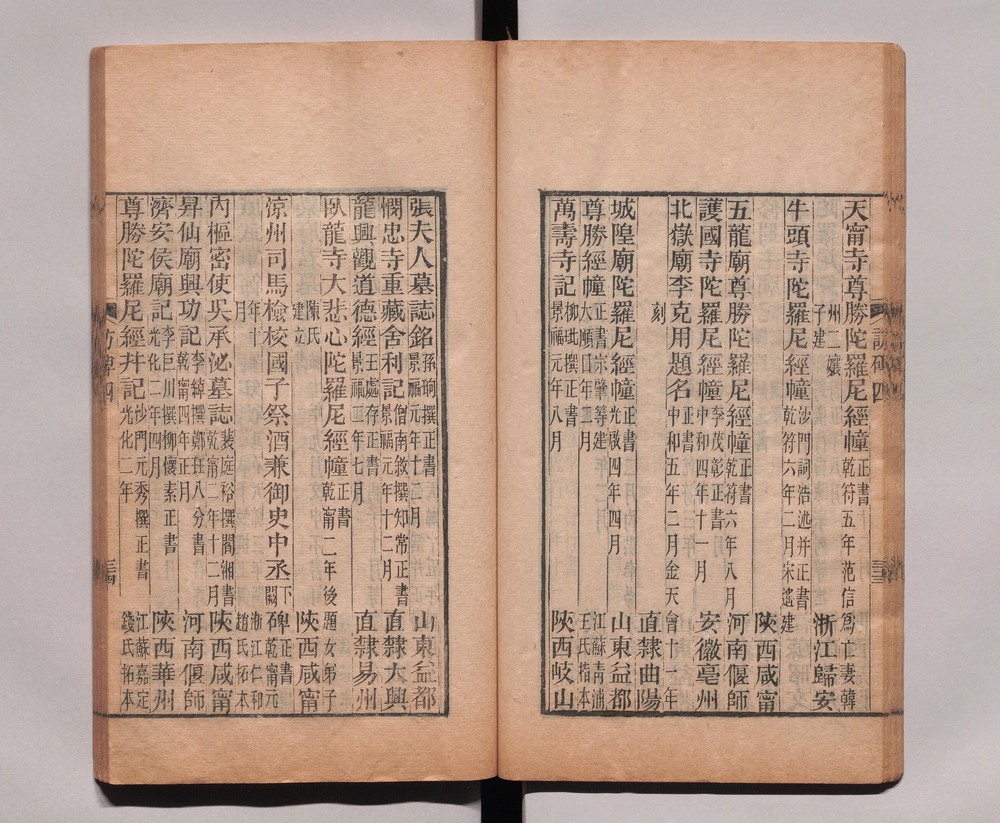 天甯寺尊勝陀羅尼經幢正書乾符五年范信爲亡妻韓
州二孃 浙江歸安
牛頭寺陀羅尼經幢沙門詞浩述并正書乾符六年二月宋遙建
子建 陝西咸甯
五龍廟尊勝陀羅尼經幢正書乾符六年八月 河南偃師
護國寺陀羅尼經幢李茂彰正書中和四年十一月 安徽亳州
北嶽廟李克用題名中和五年二月金天會十一年
刻 直隸曲陽
城隍廟陀羅尼經幢正書光啟四年四月 山東益都
尊勝經幢正書宗肇等建大順 年三月 江蘇青浦王氏拓本
萬壽寺記柳玭撰正書景福元年八月 陝西岐山
張夫人墓誌銘孫珦撰正書景福元年十月 山東益都
憫忠寺重藏舍利記僧南敘撰知常正書景福元年十二月 直隸大興
龍興觀道德經王處存正書景福二年七月 直隸易州
臥龍寺大悲心陀羅尼經幢正書乾甯二年後題女弟子
陳氏建立 陝西咸甯
涼州司馬檢校國子祭酒兼御史中丞下闕碑正書乾甯元
年十月 浙江仁和趙氏拓本
內樞密使吳承泌墓誌裴庭裕撰閻湘書乾甯二年十二月 陝西咸甯
昇仙廟興功記李綽撰鄭珏八分書乾甯四年正月 河南偃師
濟安侯廟記李巨川撰柳懷素正書光化二年四月 陝西華州
尊勝陀羅尼經幷記沙門元秀撰正書光化二年 江蘇嘉定錢氏拓本